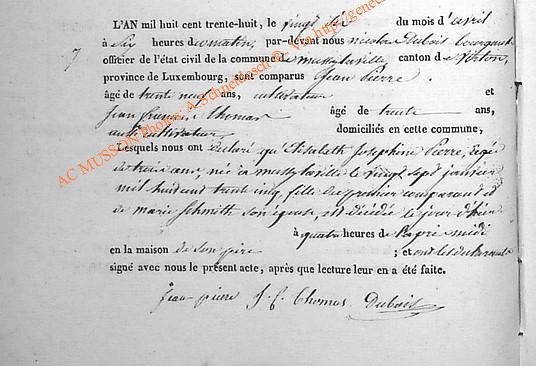 L'AN mil huit cent trente-huit, le vingt six du mois d'avril
7 à six heures du matin, par-devant nous nicolas Dubois bourgmestre
officier de l'état civil de la commune de mussy la ville, canton de Virton,
province de Luxembourg, sont comparus Jean Pierre
âgé de trente neuf ans, cultivateur et
Jean françois thomas âgé de trente ans,
aussi cultivateur domiciliés en cette commune,
Lesquels nous ont déclaré qu'Elisabeth Josephine Pierre, âgée
de trois ans, née à mussy la ville le vingt sept janvier
mil huit cent trente cinq, fille du premier comparant et
de marie Schmith son épouse, est décédée le jour d'hier
à quatre heures de l'après midi
en la maison de son père ; et ont les déclarants
signé avec nous le présent acte, après que lecture leur en a été faite.
Jean pierre J. f. thomas Dubois
AC MUSSON Photos: A.Schneidesch © - Via http://genec